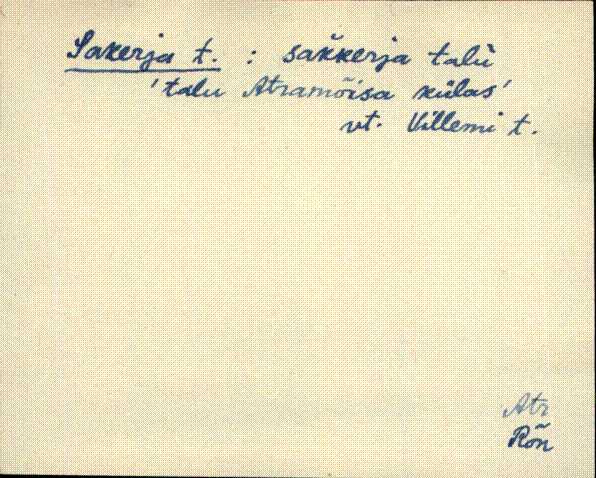 Sakerja t. : sak̆kerja talù
'talu Atramõisa külas'
vt. Villemi t.
Atr
Rõn